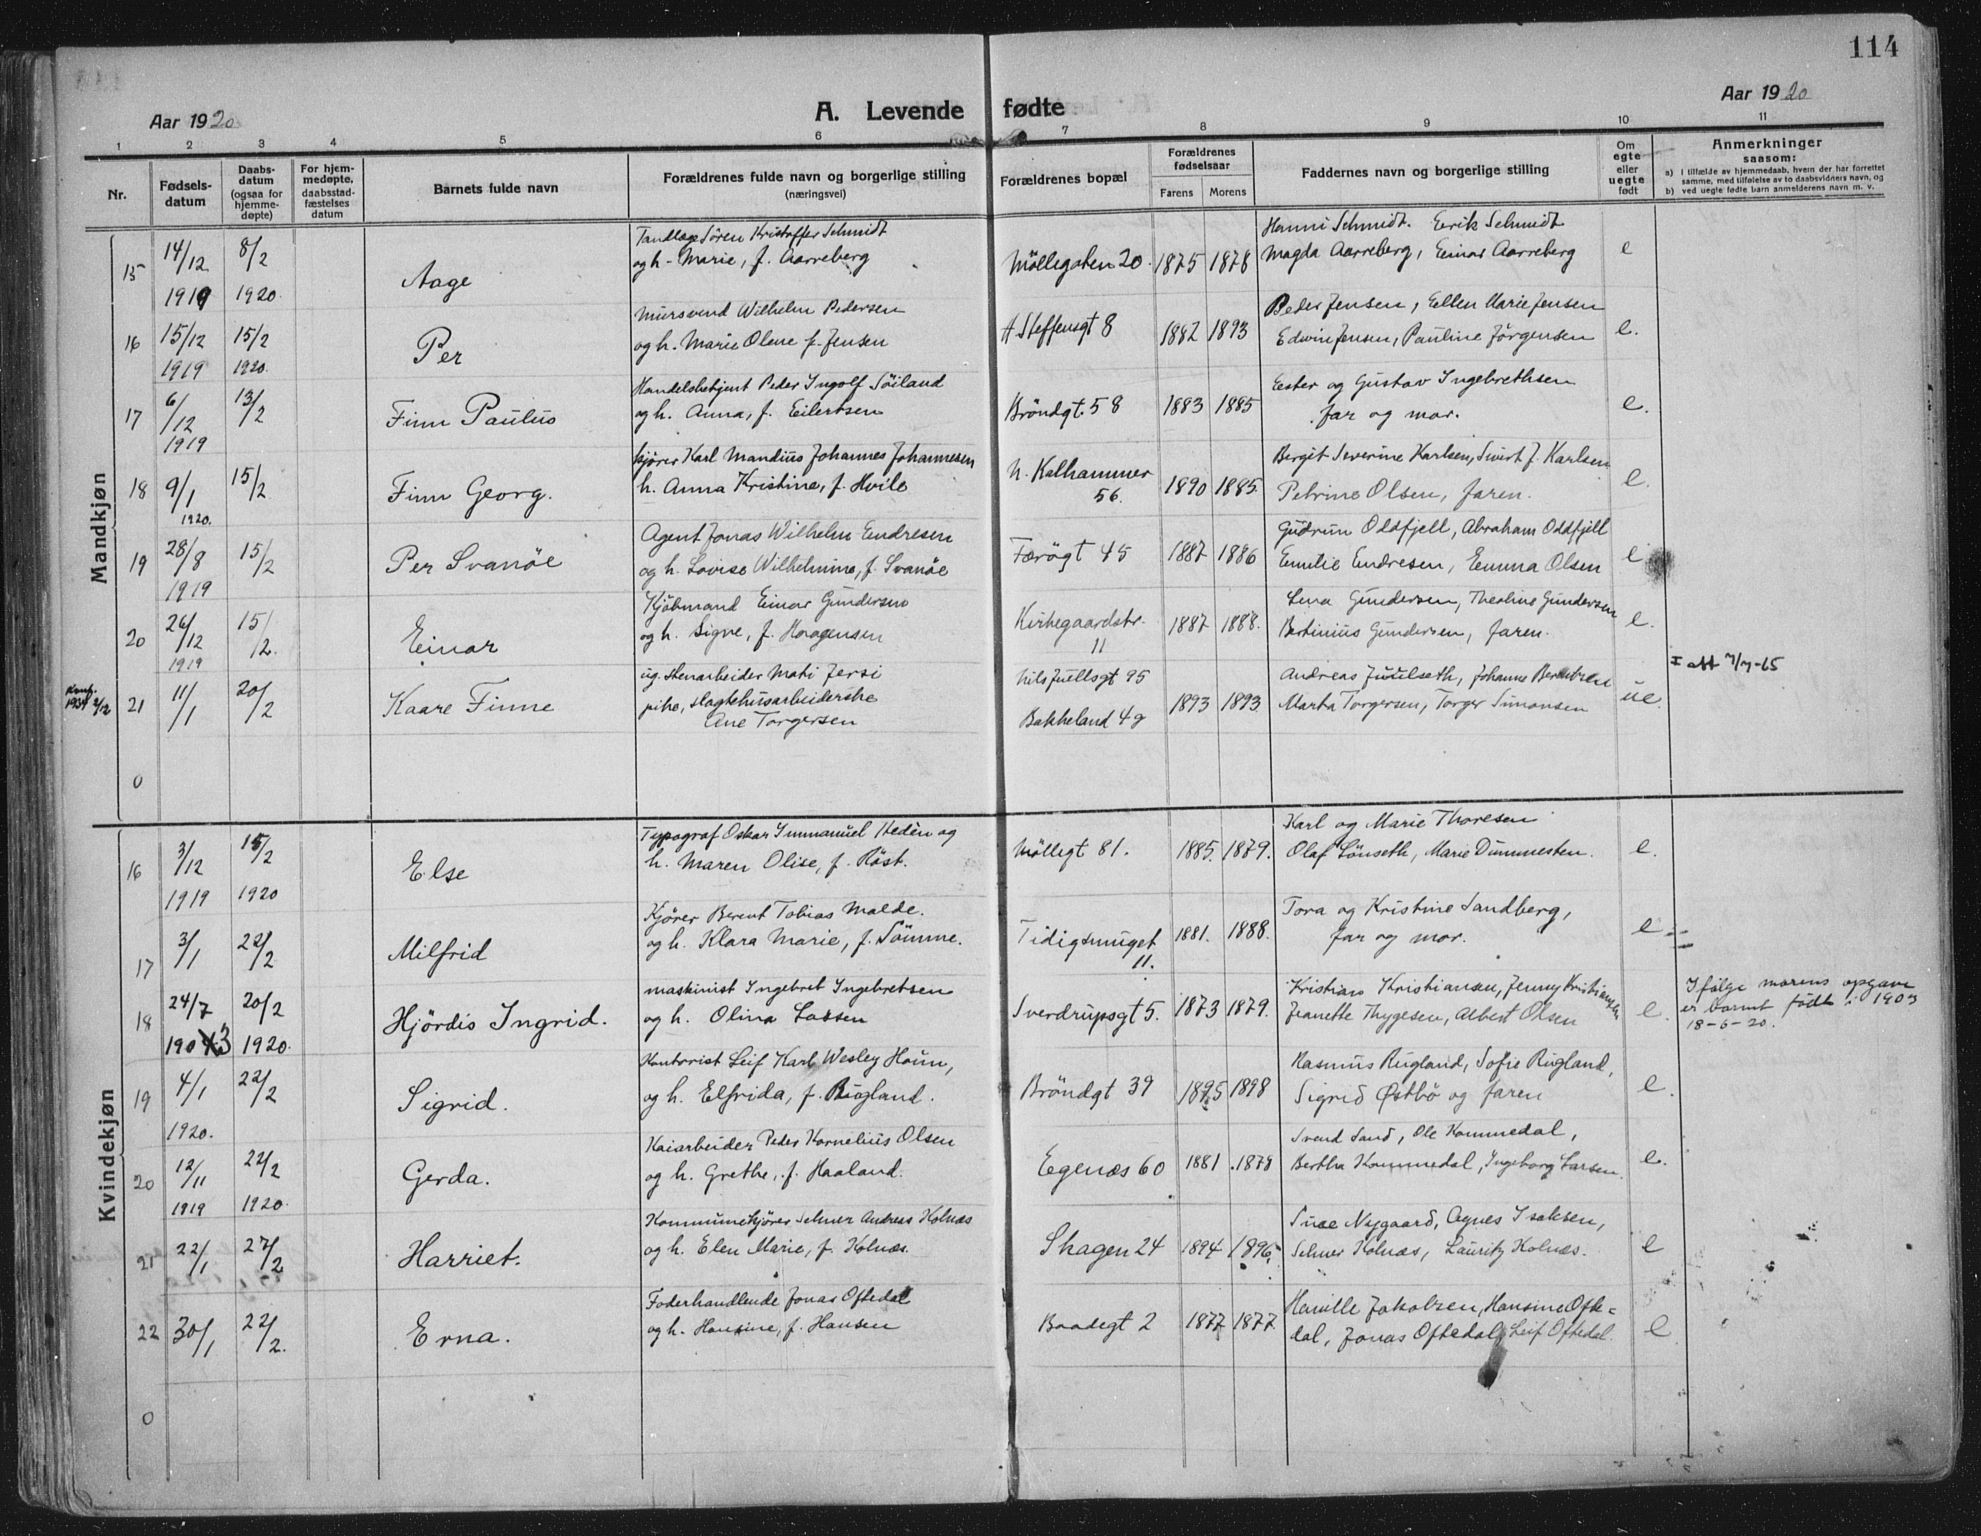 114
Aar 1920
A. Levende fødte
Aar 1920
1 2 3 4 5 6 7 8 9 10 11
Nr.
Fødsels-
datum
Daabs-
datum
(ogsaa for
hjemme-
døpte)
For hjem-
medøpte,
daabsstad-
fæstelses
datum
Barnets fulde navn
Forældrenes fulde navn og borgerlige stilling
(næringsvei)
Forældrenes bopæl
Forældrenes
fødselsaar
Farens Morens
Faddernes navn og borgerlige stilling
Om
egte
eller
uegte
født
Anmerkninger
saasom:
a) I tilfælde av hjemmedaab, hvem der har forrettet
samme, med tilføielse av to daabsvidners navn, og
b) ved uegte fødte barn anmelderens navn m. v.
Mandkjøn
15 14/12 1919 8/2 1920 Aage
Tandlæge Sören Kristoffer Schmidt
og h. Marie, f. Aarreberg
Möllegaten 20. 1875 1878
Hanni Schmidt. Eerik Schmidt
Magda Aarreberg, Einar Aarreberg
e
16 15/12 1919 15/2 1920. Per
Mursvend Wilhelm Pedersen
og h. Marie Olene f. Jensen
A Steffensgt 8 1882 1893
Peder Jensen, Ellen Marie Jensen
Edwin Jensen, Pauline Jörgensen
e.
17 6/12 1919 13/2 Finn Paulus
Handelsbetjent Peder Ingolf Söiland
og h. Anna, f. Eilertsen
Bröndgt. 58 1883 1885
Ester og Gustav Ingebrethsen
far og mor.
e.
18 9/1 1920. 15/2 Finn Georg.
kjörer Karl Mandius Johannes Johannesen
h. Anna Kristine, f. Hvile
N. Kalhammer
56. 1890 1885.
Bergit Severine Karlsen, Sivert J. Karlsen
Petrine Olsen, faren.
e.
19 28/8 1919 15/2 Per Svanöe
Agent Jonas Wilhelm Endresen
og h. Lovise Wilhelmine, f. Svanöe
Færögt 45 1887 1886
Gudrun Oddfjell, Abraham Oddfjell
Emilie Endresen, Emma Olsen
e
20 26/12 1919 15/2. Einar
Kjöbmand Einar Gundersen
og h. Signe, f. Haagensen
Kirkegaardstr.
11 1887 1888.
Lena Gundersen, Theoline Gundersen
Bertinius Gundersen, faren.
e.
Konf. 1934 2/12
21 11/1 20/2 Kaare Finne
ug. Stenarbeider Mati Jersi
pike, slagtehusarbeiderske
Ane Torgersen
Nils Juellsgt 95
Bakkeland 49 1893 1893.
Andreas Juulseth, Johanne Berentzen
Marta Torgersen, Torger Simonsen
ue.
I att 7/7-65
0
Kvindekjøn
16 3/12 1919 15/2 1920 Else
Typograf Oskar Immanuel Hedèn og
h. Maren Olise, f. Röst.
Mölligt 81. 1885. 1879.
Karl og Marie Thoresen
Olaf Lönseth, Marie Dummesten.
e.
17 3/1 22/2 Milfrid
Kjörer Berent Tobias Malde.
og h. Klara Marie, f. Sömme.
Tidigsmuget
11. 1881. 1888.
Tora og Kristine Sandberg,
far og mor.
e
18 24/7 1903 20/2 1920. Hjördis Ingrid.
Maskinist Ingebret Ingebretsen
og h. Olina Larsen
Sverdrupsgt 5. 1873 1879.
Kristian Kristiansen, Jenny Kristiansen
Jeanette Thygesen, Albert Olsen
e.
Ifölge morens opgave
er barnet födt i 1903
18-6-20.
19 4/1 1920. 22/2 Sigrid.
Kontorist Leif Karl Wesley Houn,
og h. Elfrida, f. Rugland.
Bröndgt 39 1895 1898
Rasmus Rugland, Sofie Rugland,
Sigrid Østbö og faren
e.
20 12/11 1919 22/2 1920. Gerda.
Kaiarbeider Peder Kornelius Olsen
og h. Grethe, f. Haaland.
Egenæs 60 1881 1878
Svend Sand, Ole Kommedal,
Bertha Kommedal, Ingeborg Larsen.
e.
21 22/1 27/2 Harriet.
Kommunekjörer Selmer Andreas Holnæs
og h. Elen Marie, f. Kolnæs.
Skagen 24 1894 1896
Nygaard, Agnes Isaksen,
Selmer Holnæs, Lauritz Holnæs.
e
22 30/1 22/2. Erna.
Foderhandlende Jonas Oftedal
og h. Hansine, f. Hansen
Baadegt 2 1877 1877
Jakobsen, Hansine Ofte=
dal, Jonas Oftedal, Leif Oftedal.
e
0